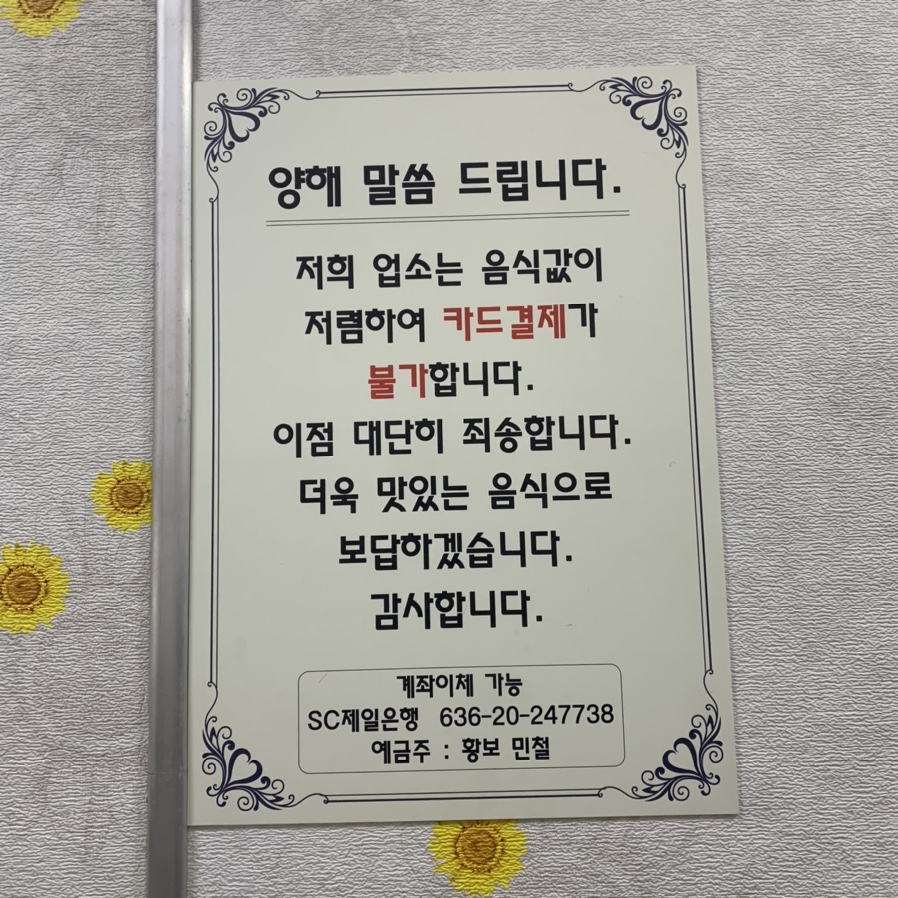 양해 말씀 드립니다.
저희 업소는 음식값이
저렴하여 카드결제가
불가합니다.
이점 대단히 죄송합니다.
더욱 맛있는 음식으로
보답하겠습니다.
감사합니다.
계좌이체 가능
SC제일은행 636-20-247738
예금주 : 황보 민철